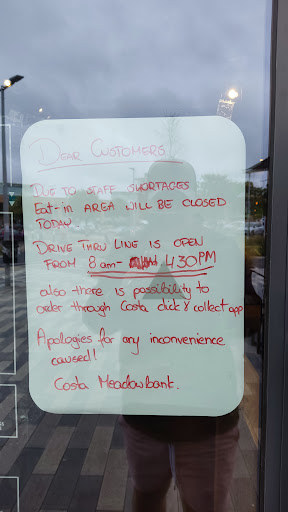 DEAR CUSTOMERS
DUE TO STAFF SHORTAGES
Eat-in AREA WILL BE CLOSED
TODAY
DRIVE THRU LINE IS OPEN
FROM 8am- 4.30PM
also there is possibility to
order through Costa click & collect app
Apologies for any inconvenience
caused!
Costa Meadowbank.